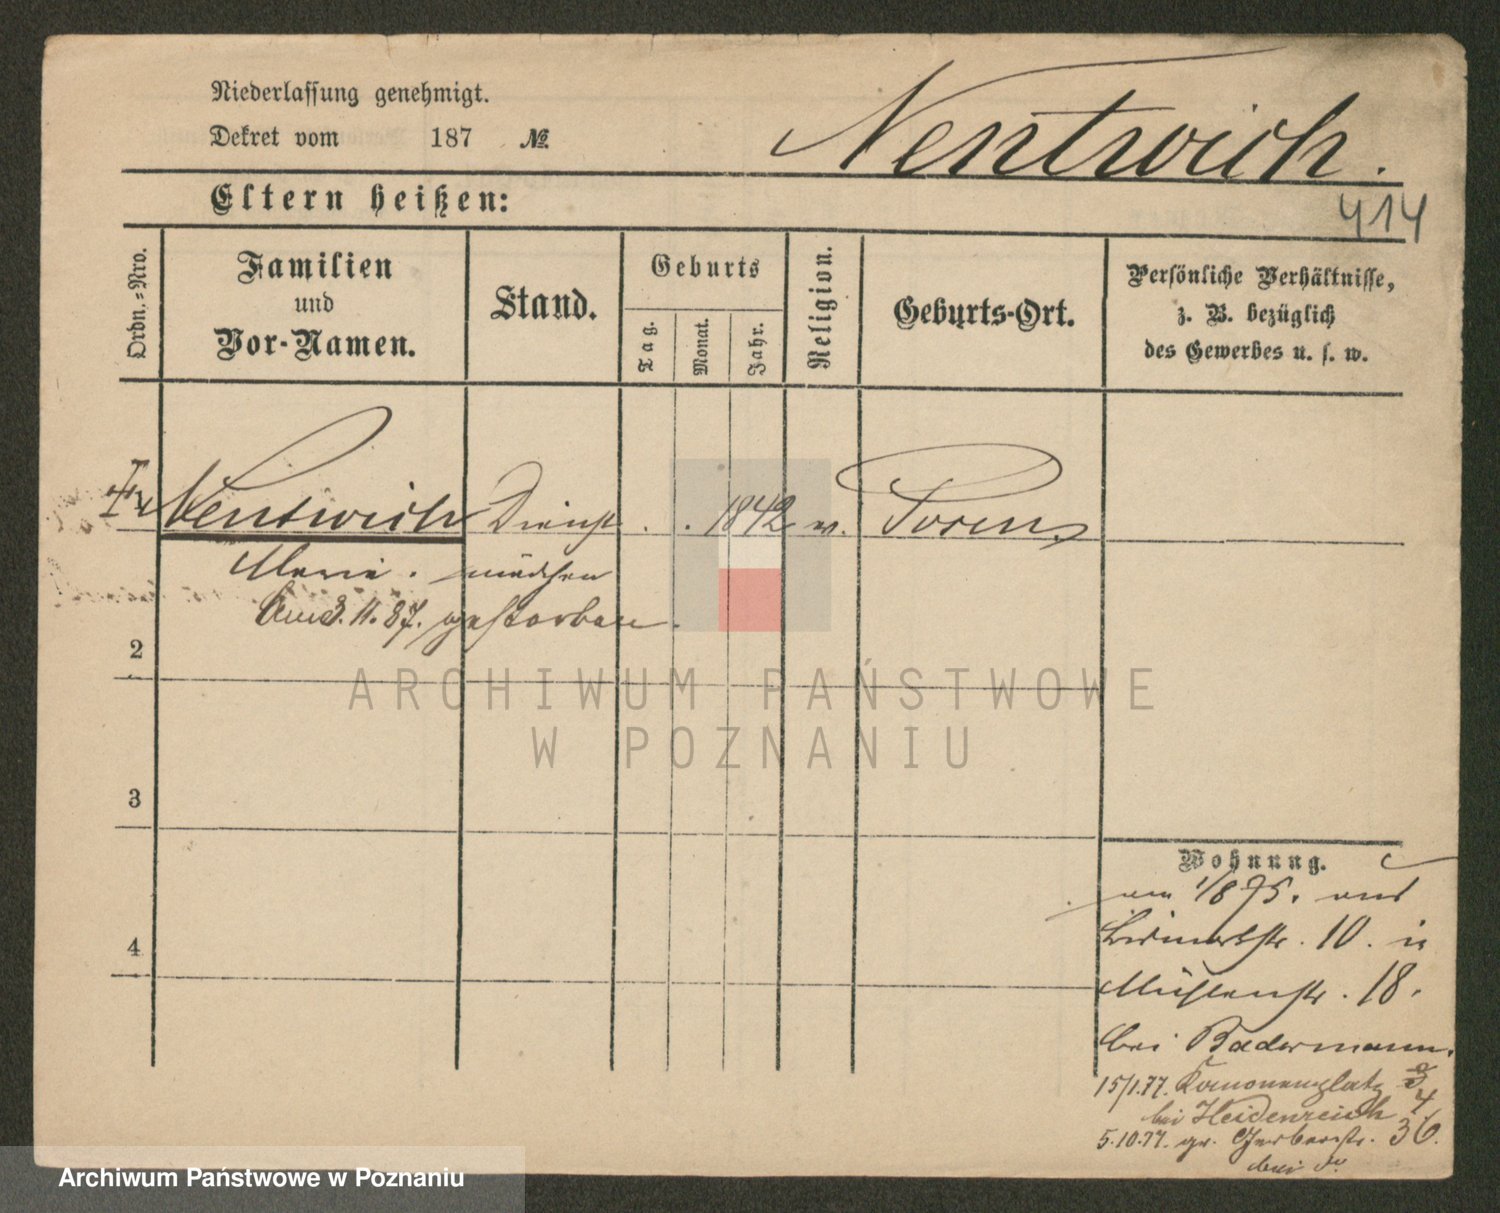 Niederlassung genehmigt.
Dekret vom 187 №
Nentwich.
414
Eltern heißen:
Ordn.-Nro.
Familien
und
Vor-Namen.
Stand.
Geburts
Tag.
Monat.
Jahr.
Religion.
Geburts-Ort.
Persönliche Verhältnisse,
z. B. bezüglich
des Gewerbes u. s. w.
Nentwich Dienst 1842 Posen
Marie. mädchen
Am 3.11.87. gestorben.
2
3
4
ARCHIWUM PAŃSTWOWE
W POZNANIU
Wohnung.
am 1/8 75. aus
Bismarkstr. 10. in
Mühlenstr. 18.
bei Badermann.
15/1.77. Kanonenplatz
bei Heidenreich 4
5.10.77. gr. Gerberstr. 36.
bei
Archiwum Państwowe w Poznaniu